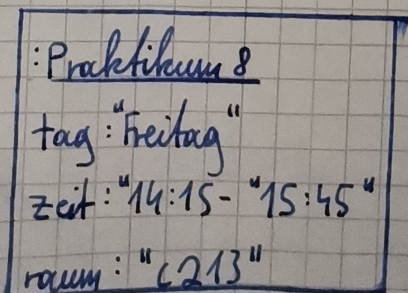 :Praktikum 8
tag:"Freitag"
zeit:"14:15-"15:45"
raum:"C213"